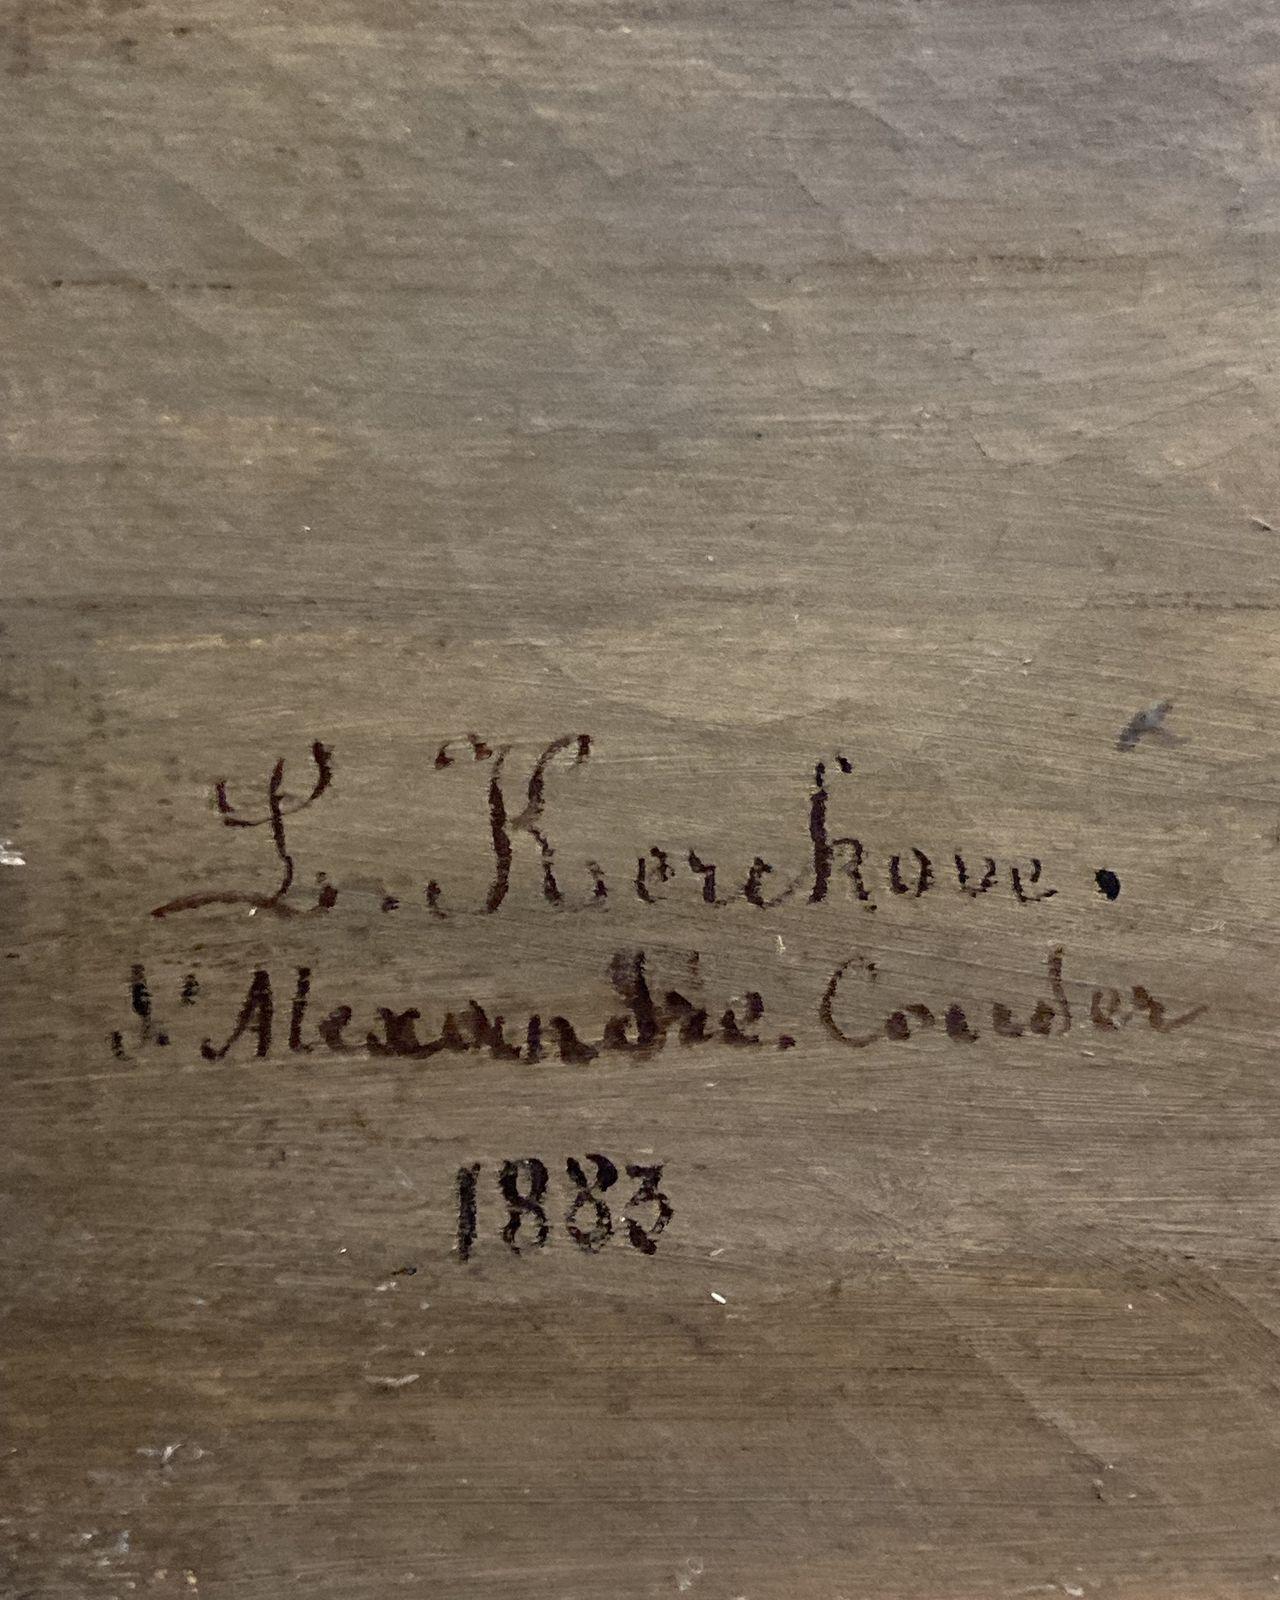 L. Kerckove.
d'Alexandre. Couder
1883